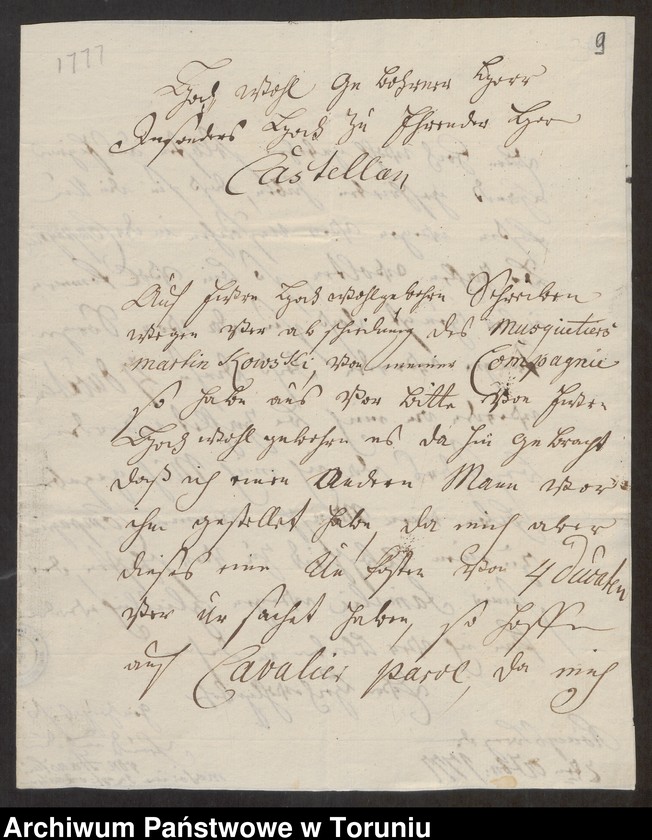 1777
9
Hoch Wohl Ge bohrner Herr
Insonders Hoch zu Ehrender Herr
Castellan
Auf Ewre Hoch Wohlgebohrn Schreiben
wegen Ver ab schiedung des Musquetiers
Martin Kowski, von meiner Compagnie
so habe aus Vor bitte Von Ewre
Hoch wohl gebohrn es da hin gebracht
daß ich einen Andern Mann vor
ihm gestellet habe, da mich aber
dieses eine Un kosten Von 4 Ducaten
Ver ur sachet haben, so hoffe
auf Cavalier parol, da mich
Archiwum Państwowe w Toruniu